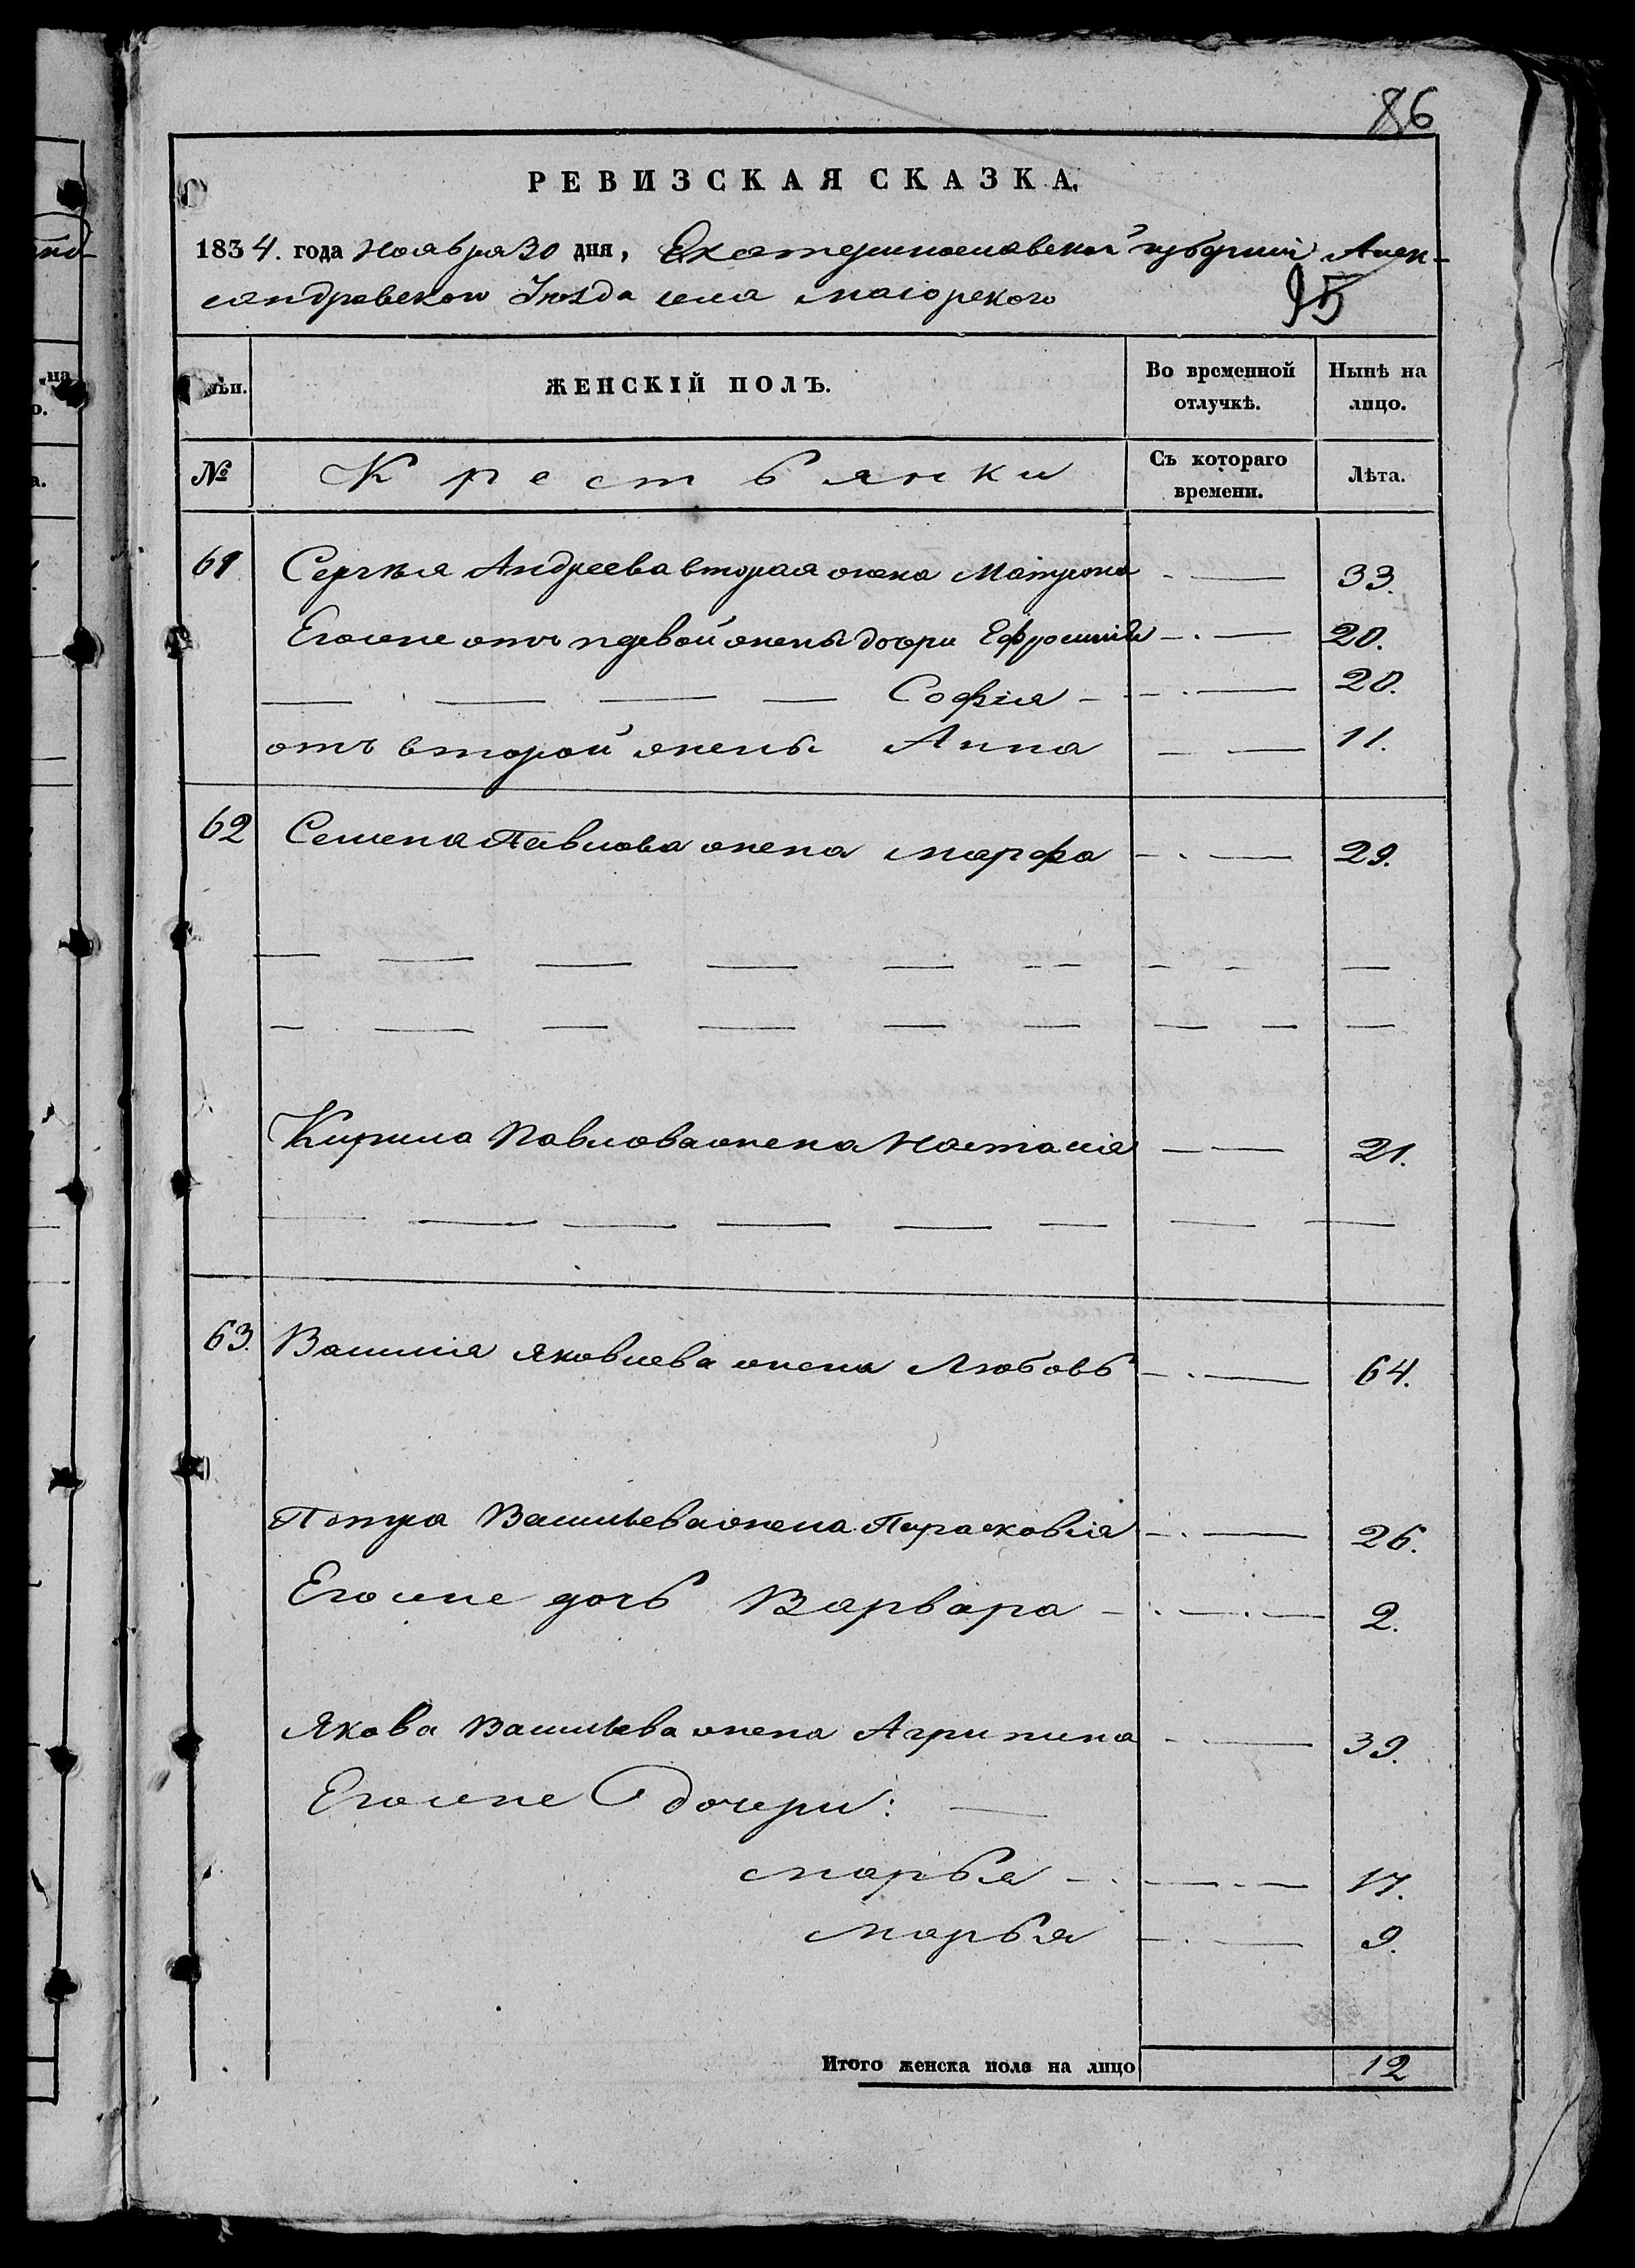 86
РЕВИЗСКАЯ СКАЗКА.
1834. года Ноября 30 дня, Екатеринославской губернии Алек-
сандровского Уезда села Маiорского
95
ЖЕНСКІЙ ПОЛЪ.
Во временной отлучкѣ.
Нынѣ на лицо.
№
Крестьянки
Съ котораго времени.
Лѣта.
61 Сергѣя Андреева вторая жена Матрона 33.
Егоже отъ первой жены дочери Ефросинiя 20.
Софiя 20.
отъ второй жены Анна 11.
62 Семена Павлова жена Марфа 29.
Кирила Павлова жена Настасiя 21.
63. Василiя Яковлева жена Любовь 64.
Петра Васильева жена Парасковiя 26.
Егоже дочь Варвара 2.
Якова Васильева жена Агрипина 39.
Егоже дочери:
Марья 17.
Марья 9.
Итого женска пола на лицо 12